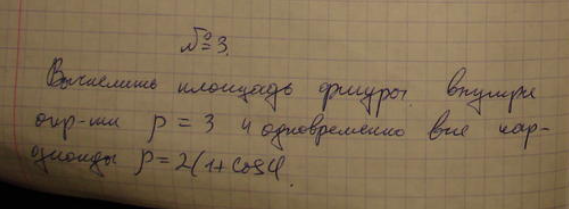 №3.
Вычислить площадь фигуры внутри
окр-ти ρ = 3 и одновременно вне кар-
диоиды ρ = 2(1+cosφ.